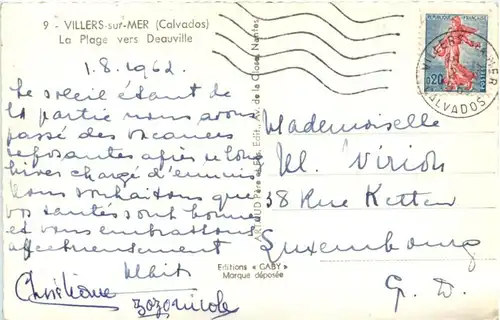 9 - VILLERS-sur-MER (Calvados)
La Plage vers Deauville
1.8.1962.
Le soleil étant de
la partie nous avons
passé des vacances
reposantes après le long
hiver chargé d'ennuis
Nous souhaitons que
vos santés sont bonnes
et vous embrassons
affectueusement
Christiane
zozo nicole
Editions « GABY »
Marque déposée
ARTAUD Père et Fils, Edit., Av. de la Close, Nantes
REPUBLIQUE FRANÇAISE
0,20
POSTES
CALVADOS
Mademoiselle
M. Virion
38 Rue Ketten
Luxembourg
G. D.